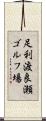 足利渡良瀬ゴルフ場